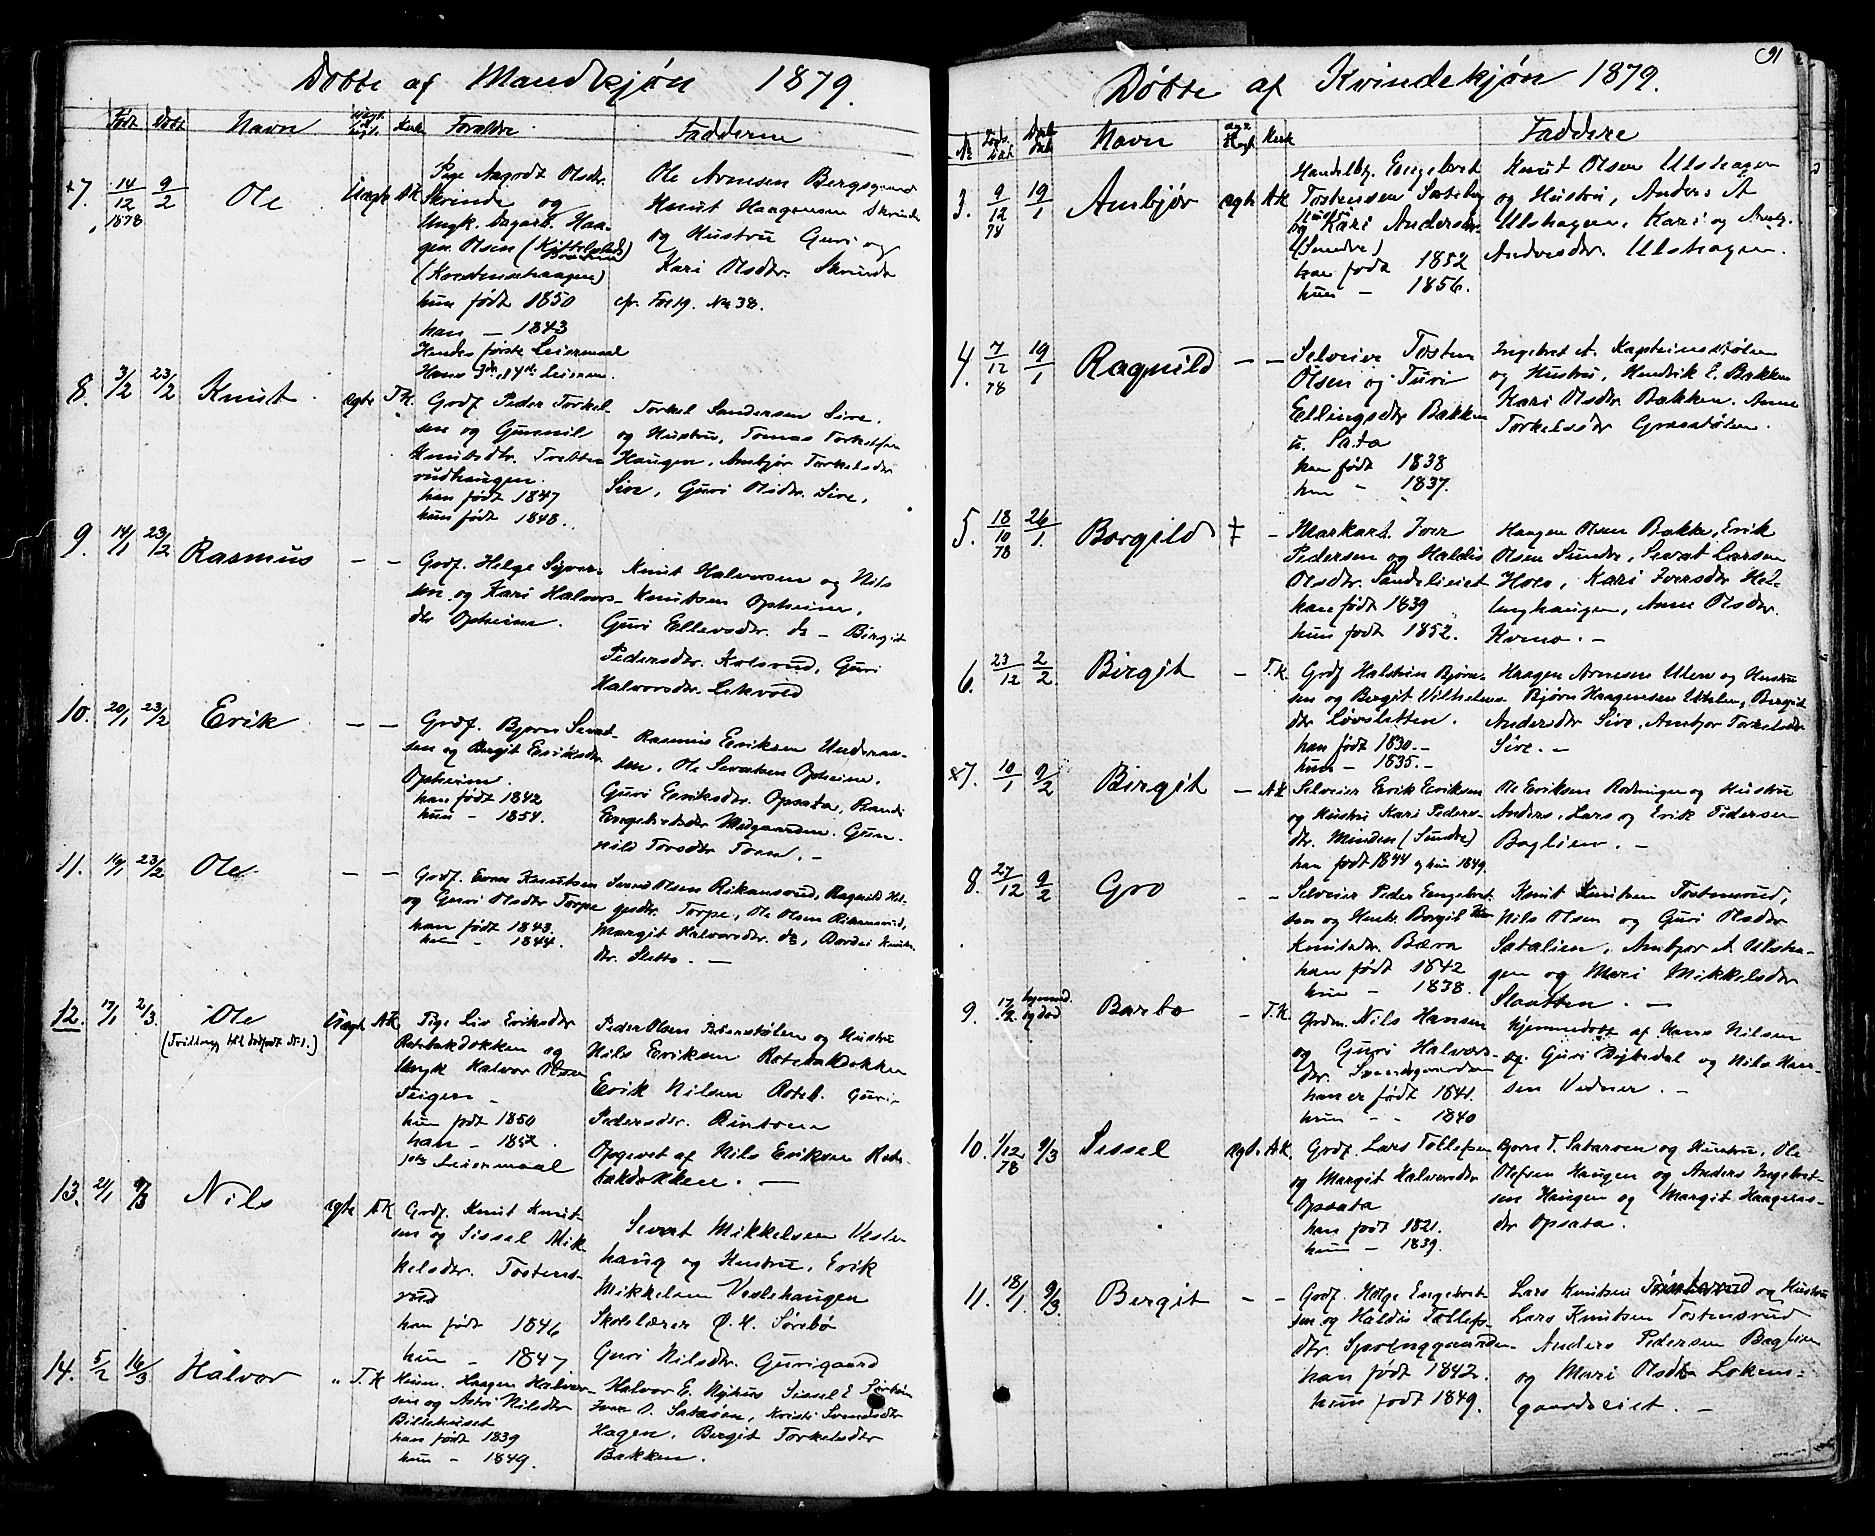 Døbte af Mandkjøn 1879.
Født Døbt Navn Kirk Forældre Fadderne
×7. 14/12 1878 9/2 Ole Uægte AK
Pige Aagodt Olsdr.
Skrinde og
Ungk. Haa-
gen Olsen
hun født 1850
han — 1843
Hendes første Leiermaal
Ole Arnesen Bergsgaard
Knut Haagensen Skrinde
og Hustru Guri og
Kari Olsdr. Skrinde
cfr. No 38.
8. 3/2 23/2 Knut ægte T.K.
Grdf. Peder Torkel-
sen og Gunnil
Knutsdtr. Trætten-
rudhaugen.
han født 1847
hun født 1848.
Torkel Sandersen Sire,
og Hustru, Tomas Torkelsen
Haugen, Ambjør Torkelsdr
Sire, Guri Olsdtr. Sire,
9. 14/1 23/2 Rasmus — —
Grdf. Helge Syver-
sen og Kari Halvors-
dtr Opheim.
Knut Halvorsen og Nils
Knutsen Opheim,
Guri Ellevsdtr. ds — Birgit
Pedersdtr. Kolsrud, Guri
Halvorsdtr. Lekvold
10. 20/1 23/2 Erik — —
Grdf. Bjørn Sevat-
sen og Bergit Eriksdtr
Opheim.
han født 1842
hun — 1854.
Rasmus Eriksen Underaa-
sen, Ole Sevatsen Opheim,
Guri Eriksdtr. Opsata, Randi
Engebretsdtr Midgaarden. Gun-
nild Torsdtr Toen. —
11. 19/1 23/2 Ole — —
Grdf. Even Knutsen
og Guri Olsdtr Torpe
han født 1843.
hun — 1844.
Svend Olsen Rikansrud, Ragnild Hel-
gesdtr. Torpe, Ole Olsen Rikansrud,
Margit Halvorsdtr. ds, Dordei Knuts-
dtr. Sletto. —
12. 17/1 2/3 Ole Uægte AK
(Tvilling til dødfødt No 1.)
Pige Liv Eriksdtr
Rotebakdokken og
Ungk Halvor Olsen
Teigen —
hun født 1850
han — 1852.
Leiermaal
Peder Olsen Peterstølen og Hustru
Nils Eriksen Rotebakdokken
Erik Nilsen Roteb. Guri
Pedersdtr. Runtom
Opgivet af Nils Eriksen Rote-
bakdokken. —
13. 21/1 9/3 Nils ægte AK
Grdf. Knut Knut-
sen og Sissel Mik-
kelsdtr. Tostens-
rud
han født 1846
hun — 1847.
Sevat Mikkelsen Vesle-
haug og Hustru, Erik
Mikkelsen Veslehaugen
Skolelærer Ø. H. Sørebø
Guri Nilsdtr. Gurigaard
14. 5/2 16/3 Halvor „ T.K
Husm. Haagen Halvor-
sen og Astri Nilsdtr
Billehuset
han født 1839
hun — 1849.
Halvor E. Nyhus Sissel E
Iver O. Sataøen, Kristi Svendsdtr
Hagen, Bergit Torkelsdtr
Bakken.
91
Døbte af Kvindekjøn 1879.
No Føds. Dat Døbt Dat Navn Kirk Faddere
3. 9/12 78 19/1 Ambjør ægte AK
Handelsbtj. Engebret
Tostensen Sateby
og Hustru Kari Andersdtr
(Sundre)
han født 1852
hun — 1856.
Knut Olsen Ulshagen
og Hustru, Anders A
Ulshagen, Kari og Ambj.
Andersdtr. Ulshagen.
4. 7/12 78 19/1 Ragnild — —
Selveier Tosten
Olsen og Turi
Ellingsdtr Bakken
u. Sata
han født 1838
hun — 1837.
Ingebret A. Kapteinsstølen
og Hustru, Hendrik E. Bakken
Kari Olsdtr. Bakken. Anne
Torkelsdtr Grøsstølen.
5. 18/10 78 26/1 Borgild ‡ -
Markart. Iver
Pedersen og Haldis
Olsdtr. Sandeleiet
han født 1839
hun født 1852.
Haagen Olsen Bakke, Erik
Olsen Sundre, Sevat Larsen
Hovo, Kari Iversdtr Hel-
linghaugen, Anne Olsdtr.
Homo. —
6. 23/12 2/2 Birgit — T.K.
Grdf Halstein Bjørn-
sen og Bergit Vilhelms-
dtr Løvsletten.
han født 1830. —
hun — 1835. —
Haagen Arnesen Ulen og Hustru
Bjørn Haagensen Uelen, Bergit
Andersdtr Sire, Ambjør Torkelsdtr
Sire. —
×7. 10/1 9/2 Birgit — AK
Selveier Erik Eriksen
og Hustru Kari Peders-
dtr. Minden (Sundre)
han født 1844 og hun 1849
Ole Eriksen Rodningen og Hustru
Anders, Lars og Erik Pedersen
Baglien. —
8. 27/12 9/2 Gro - -
Selveier Peder Engebret-
sen og Hustr. Borgil
Knutsdtr. Bæra
han født 1842
hun — 1838.
Knut Knutsen Tostensrud,
Nils Olsen og Guri Olsdtr
Satalien, Ambjør A. Ulsha-
gen og Mari Mikkelsdtr
Slaatten. —
9. 17/2 hjemmedøbt Barbo — T.K.
Grdm. Nils Hansen
og Guri Halvors-
dtr. Svendsgaarden
han er født 1841.
hun — - 1840
Hjemmedøbt af Hans Nilsen
og Guri Dybsdal og Nils Han-
sen Vedner. —
10. 1/12 78 9/3 Sissel ægt. AK
Grdf. Lars Tollefsen
og Margit Halvorsdtr
Opsata
han født 1821.
hun — 1839.
Bjørn T. Sataroen og Hustru, Ole
Olefsen Haugen og Anders Ingebret-
sen Haugen og Margit Haagens-
dtr Opsata.
11. 18/1 9/3 Bergit — -
Grdf. Helge Engebret-
sen og Haldis Tollefs-
dtr. Sponggaarden
han født 1842.
hun født 1849.
Lars Knutsen og Hustru
Lars Knutsen Tostensrud
Anders Pedersen Baglien
og Mari Olsdtr Lokens-
gaardseiet. —